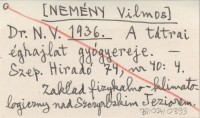 [NEMÉNY Vilmos]
Dr. N. V. 1936. A tátrai
éghajlat gyógyereje. —
Szep. Hiradó 74, nr 40: 4.
zakład fizykalno-klimato-
logiczny nad Szczyrbskim Jeziorem.